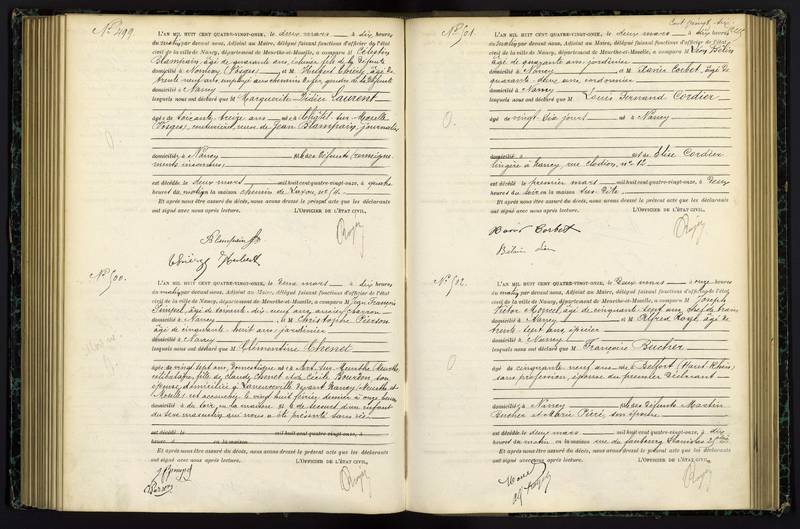 N° 499.
L'AN MIL HUIT CENT QUATRE-VINGT-ONZE, le deux mars à dix heures
du matin par devant nous, Adjoint au Maire, délégué faisant fonctions d'officier de l'état
civil de la ville de Nancy, département de Meurthe-et-Moselle, a comparu M Célestin
Blampain, âgé de quarante ans, fils de la défunte
domicilié à (Vosges) et M Hubert Thiéry, âgé de
trente neuf ans, employé aux chemins de fer, gendre de la défunte
domicilié à Nancy
lesquels nous ont déclaré que M Marguerite Didier Laurent
âgée de soixante treize ans née à Eloyes sur Moselle
Vosges, veuve de Jean Blampain, journalier
domiciliée à Nancy et des défunts (renseigne-
ments inconnus)
est décédée le deux mars mil huit cent quatre-vingt-onze, à quatre
heures du matin en la maison chemin de
Et après nous être assuré du décès, nous avons dressé le présent acte que les déclarants
ont signé avec nous après lecture. L'OFFICIER DE L'ÉTAT CIVIL,
Blampain
Thiéry Hubert
N° 500.
L'AN MIL HUIT CENT QUATRE-VINGT-ONZE, le deux mars à dix heures
du matin par devant nous, Adjoint au Maire, délégué faisant fonctions d'officier de l'état
civil de la ville de Nancy, département de Meurthe-et-Moselle, a comparu M Jean François
âgé de soixante dix neuf ans, ancien charron
domicilié à Nancy et M Christophe Pierson
âgé de cinquante huit ans, jardinier
domicilié à Nancy
lesquels nous ont déclaré que M Clémentine Chenet
âgée de vingt sept ans, domestique née à Art sur Meurthe (Meurthe
célibataire, fille de Claude Chenet et de Cécile Bourdon, son
épouse domiciliés à Laneuveville devant Nancy (Meurthe et
Moselle) est accouchée le vingt huit février dernier à onze heures
du soir, en la maison d'un enfant
du sexe masculin qui nous a été présenté sans vie
est décédé le mil huit cent quatre-vingt-onze, à
heures d en la maison
Et après nous être assuré du décès, nous avons dressé le présent acte que les déclarants
ont signé avec nous après lecture. L'OFFICIER DE L'ÉTAT CIVIL,
Pierson
Cent vingt six
N° 501.
L'AN MIL HUIT CENT QUATRE-VINGT-ONZE, le deux mars à dix heures
du matin par devant nous, Adjoint au Maire, délégué faisant fonctions d'officier de l'état
civil de la ville de Nancy, département de Meurthe-et-Moselle, a comparu M Léon
âgé de quarante ans, jardinier
domicilié à Nancy et M Xavier Corbet, âgé de
quarante deux ans, cordonnier
domicilié à Nancy
lesquels nous ont déclaré que M Louis Fernand Cordier
âgé de vingt dix jours né à Nancy
domicilié à et de Elise Cordier
lingère à Nancy, rue Clodion, n° 12
est décédé le premier mars mil huit cent quatre-vingt-onze, à deux
heures du soir en la maison
Et après nous être assuré du décès, nous avons dressé le présent acte que les déclarants
ont signé avec nous après lecture. L'OFFICIER DE L'ÉTAT CIVIL,
Xavier Corbet
N° 502.
L'AN MIL HUIT CENT QUATRE-VINGT-ONZE, le deux mars à onze heures
du matin par devant nous, Adjoint au Maire, délégué faisant fonctions d'officier de l'état
civil de la ville de Nancy, département de Meurthe-et-Moselle, a comparu M Joseph
Victor âgé de cinquante sept ans, chef de train
domicilié à Nancy et M Alfred âgé de
trente sept ans, épicier
domicilié à Nancy
lesquels nous ont déclaré que M Françoise Bucher
âgée de cinquante neuf ans née à Belfort (Haut Rhin)
sans profession, épouse du premier déclarant
domiciliée à Nancy et des défunts Martin
Bucher et Marie son épouse
est décédée le deux mars mil huit cent quatre-vingt-onze, à
heures du matin en la maison rue du faubourg Stanislas
Et après nous être assuré du décès, nous avons dressé le présent acte que les déclarants
ont signé avec nous après lecture. L'OFFICIER DE L'ÉTAT CIVIL,